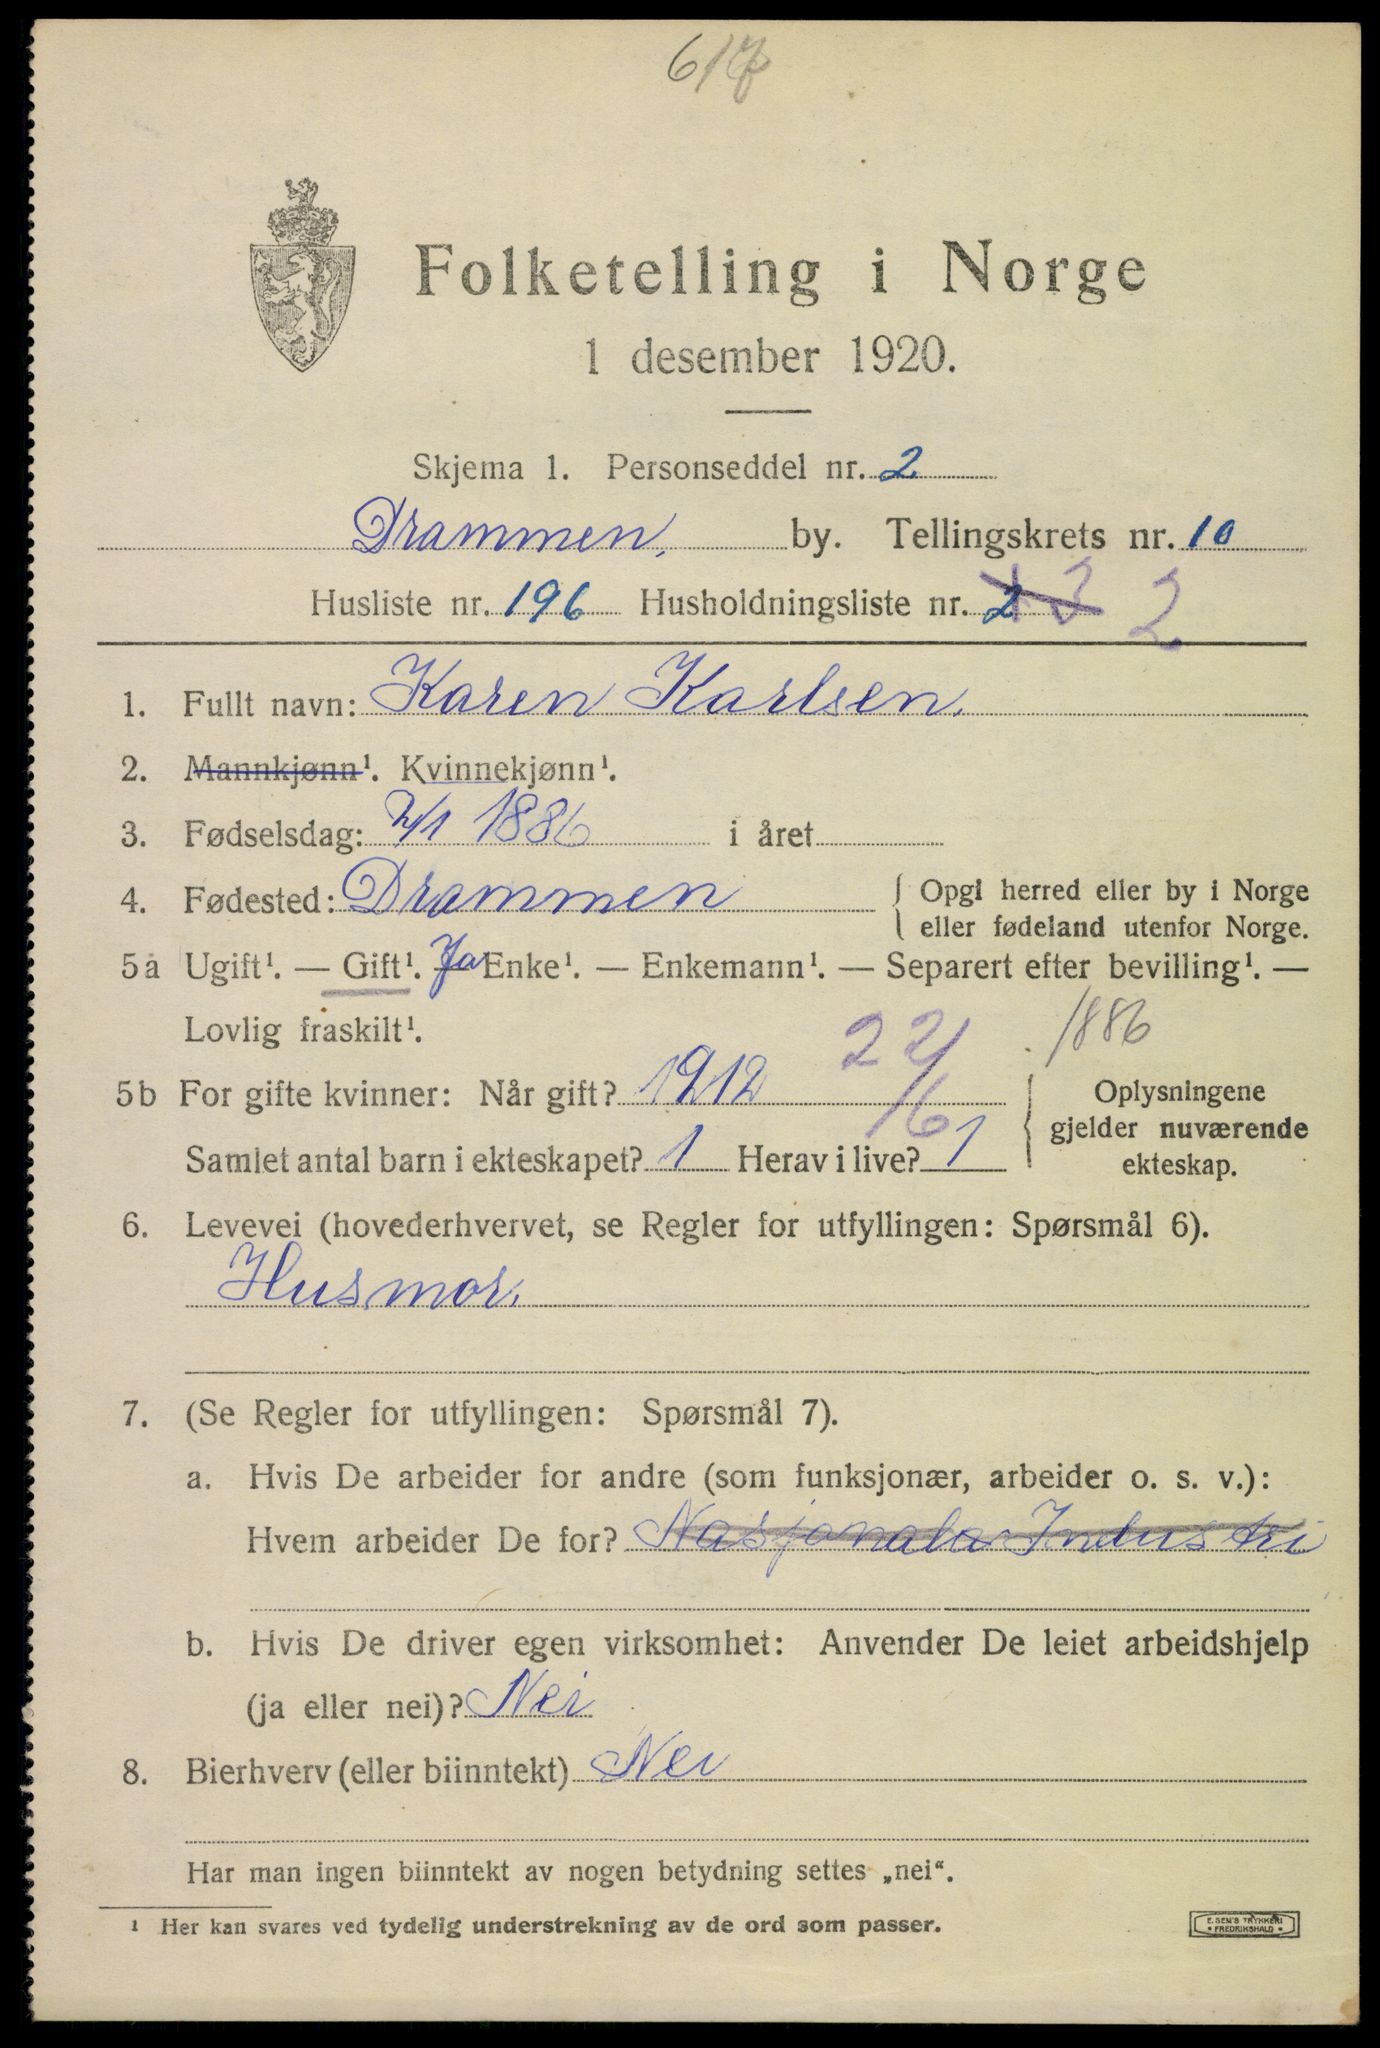 617
Folketelling i Norge
1 desember 1920.
Skjema 1. Personseddel nr. 2
Drammen, by. Tellingskrets nr. 10
Husliste nr. 196 Husholdningsliste nr. 2 3 2
1. Fullt navn: Karen Karlsen.
2. Mannkjønn¹. Kvinnekjønn¹.
3. Fødselsdag: 2/1 1886 i året
4. Fødested: Drammen { Opgi herred eller by i Norge
eller fødeland utenfor Norge.
5a Ugift¹. — Gift¹. Ja Enke¹. — Enkemann¹. — Separert efter bevilling¹. —
Lovlig fraskilt¹.
22/6 1886
5b For gifte kvinner: Når gift? 1912
Samlet antal barn i ekteskapet? 1 Herav i live? 1
{ Oplysningene
gjelder nuværende
ekteskap.
6. Levevei (hovederhvervet, se Regler for utfyllingen: Spørsmål 6).
Husmor.
7. (Se Regler for utfyllingen: Spørsmål 7).
a. Hvis De arbeider for andre (som funksjonær, arbeider o. s. v.):
Hvem arbeider De for? Nasjonale Industri
b. Hvis De driver egen virksomhet: Anvender De leiet arbeidshjelp
(ja eller nei)? Nei
8. Bierhverv (eller biinntekt) Nei
Har man ingen biinntekt av nogen betydning settes „nei“.
¹ Her kan svares ved tydelig understrekning av de ord som passer.
E. SEM'S TRYKKERI
• FREDRIKSHALD •